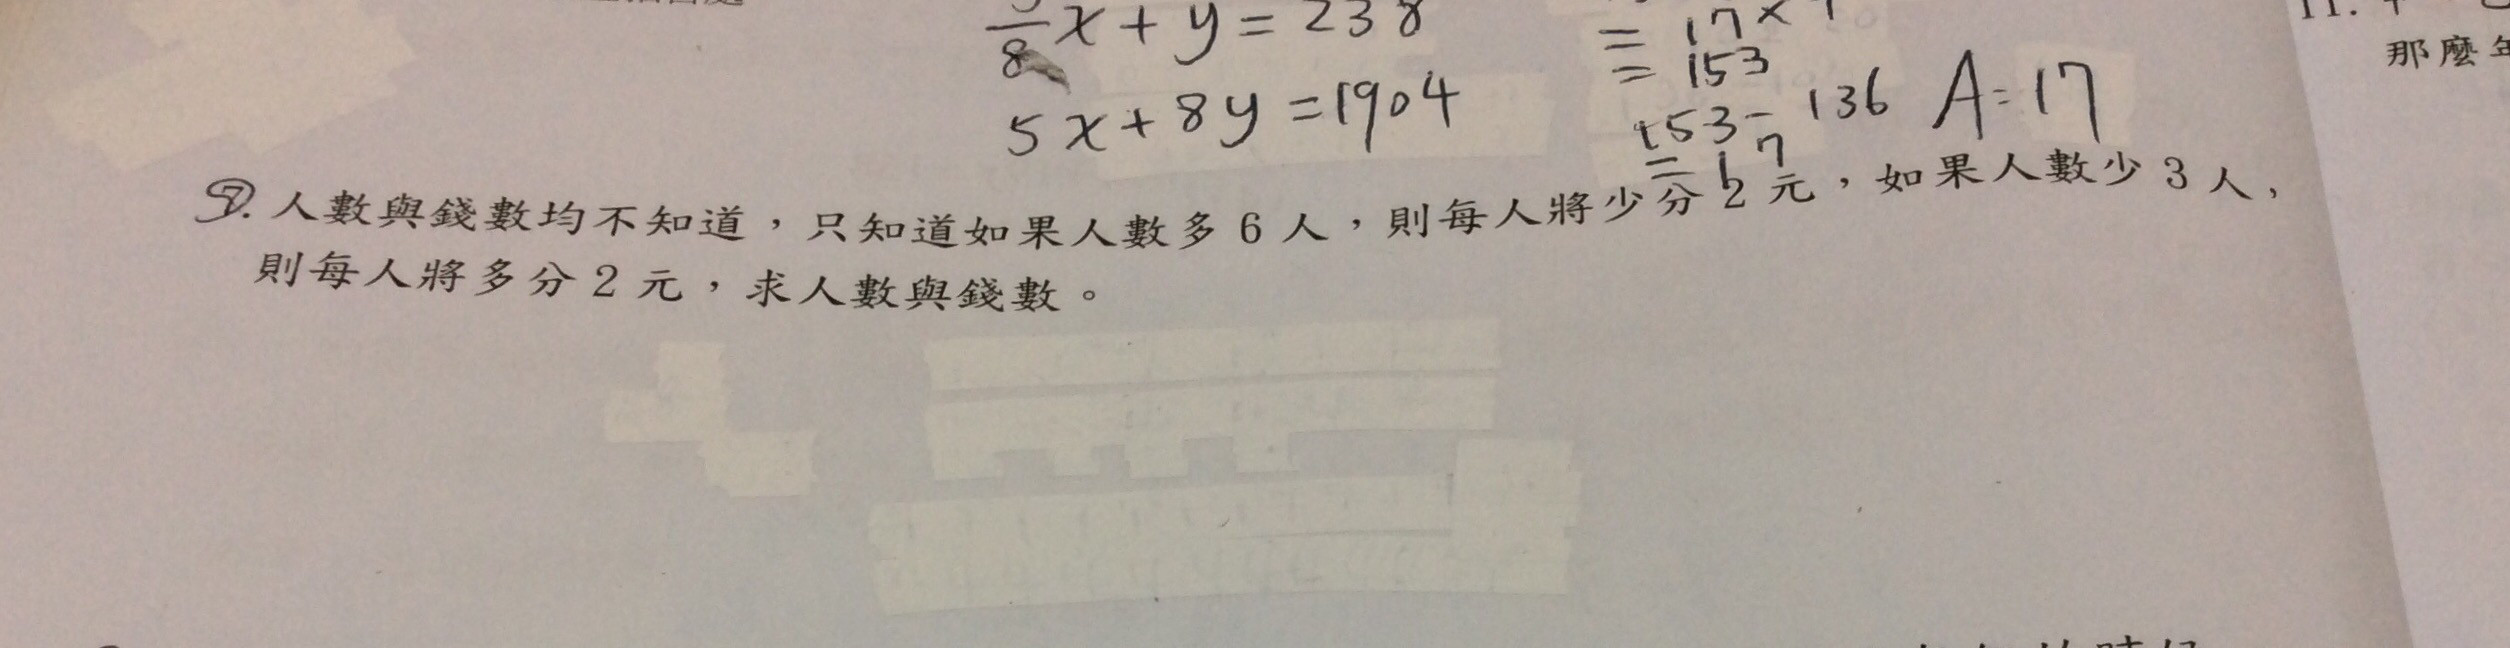 x + y = 238
8
5x + 8y = 1904
= 17 ×
= 153
153 - 136 A = 17
= 17
11.
那麼年
7. 人數與錢數均不知道，只知道如果人數多 6 人，則每人將少分 2 元，如果人數少 3 人，
則每人將多分 2 元，求人數與錢數。